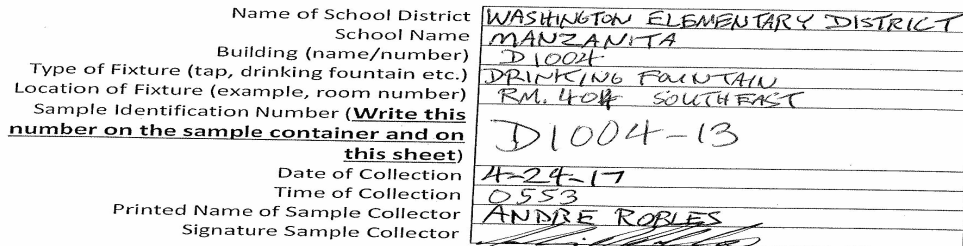 Name of School District WASHINGTON ELEMENTARY DISTRICT
School Name MANZANITA
Building (name/number) D1004
Type of Fixture (tap, drinking fountain etc.) DRINKING FOUNTAIN
Location of Fixture (example, room number) RM. 404 SOUTHEAST
Sample Identification Number (Write this
number on the sample container and on D1004-13
this sheet)
Date of Collection 4-24-17
Time of Collection 0553
Printed Name of Sample Collector ANDRE ROBLES
Signature Sample Collector